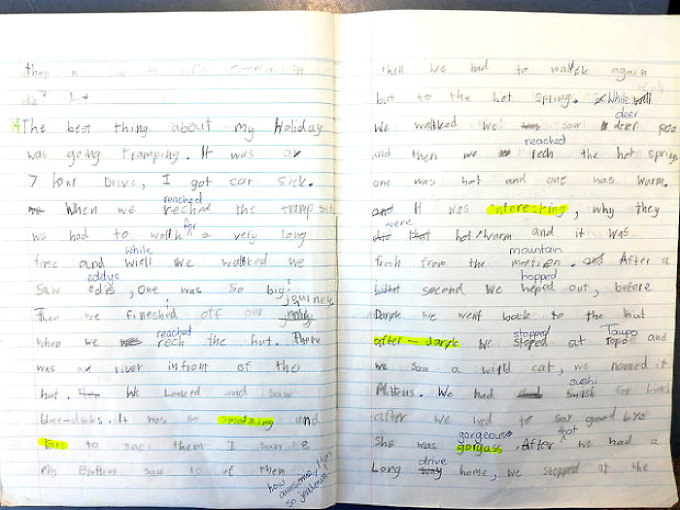 then
The best thing about my Holiday
was going tramping. It was a
7 hour Drive, I got car sick.
When we reched the tramp sit
reached
we had to walk a very long
for
time and wiell we walked we
while
saw edis, One was so big!
eddys
Then we fineshed off our jurny
journey
when we rech the hut. There
reached
was a river infront of the
hut. We Looked and saw
blue-ducks. It was so amazing and
to see them I saw 8
my Brother saw 10 of them
how awesome, I'm so jealous!
then we had to walk again
but to the hot spring. While
We walked we saw deer poo
deer
and then we rech the hot spring
reached
one was hot and one was warm.
and It was interesting, why they
were
did that hot/warm and it was
fresh from the . After a
mountain
second we heped out, before
hopped
Dark we went back to the hut
after-dark We stoped at Topo and
stopped Taupo
we saw a wild cat, we named it
Mittens. We had for lunch
sushi
after we had to say good bye
She was gorgass. After we had a
gorgeous that
Long home, we stopped at the
drive